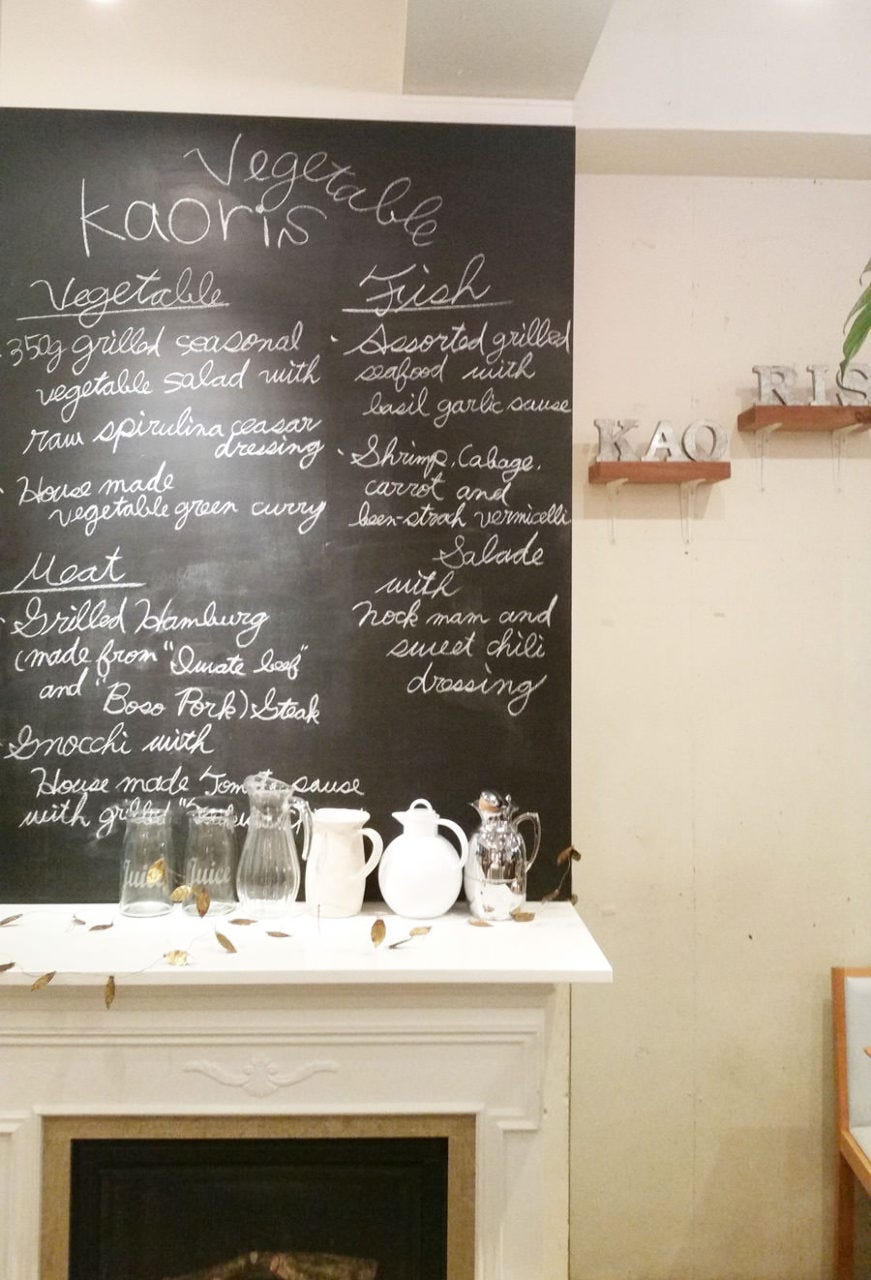 Vegetable
kaoris
Vegetable
350g grilled seasonal
vegetable salad with
raw spirulina ceasar
dressing
House made
vegetable green curry
Meat
Grilled Hamburg
(made from "Iwate beef"
and "Boso Pork") Steak
Gnocchi with
House made Tomato sause
with grilled
Fish
Assorted grilled
seafood with
basil garlic sause
Shrimp, Cabage,
carrot and
been-strah vermicelli
Salade
with
nock mam and
sweet chili
dressing
KAO
RIS
Juice
Juice